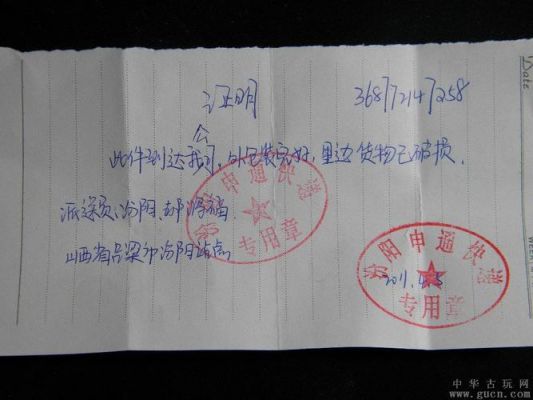 证明
368721417258
此件到达我公司,外包装完好,里边货物已破损.
派送员:汾阳.
山西省吕梁市汾阳站点
汾阳申通快递
专用章
汾阳申通快递
专用章
2011.
Date
中华古玩网
www.gucn.com